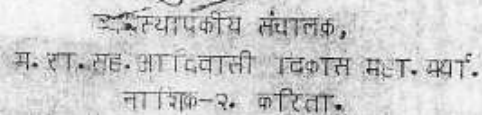 व्यवस्थापकीय संचालक,
म. रा. सह. आदिवासी विकास महा. मर्या.
नाशिक-२. करिता.